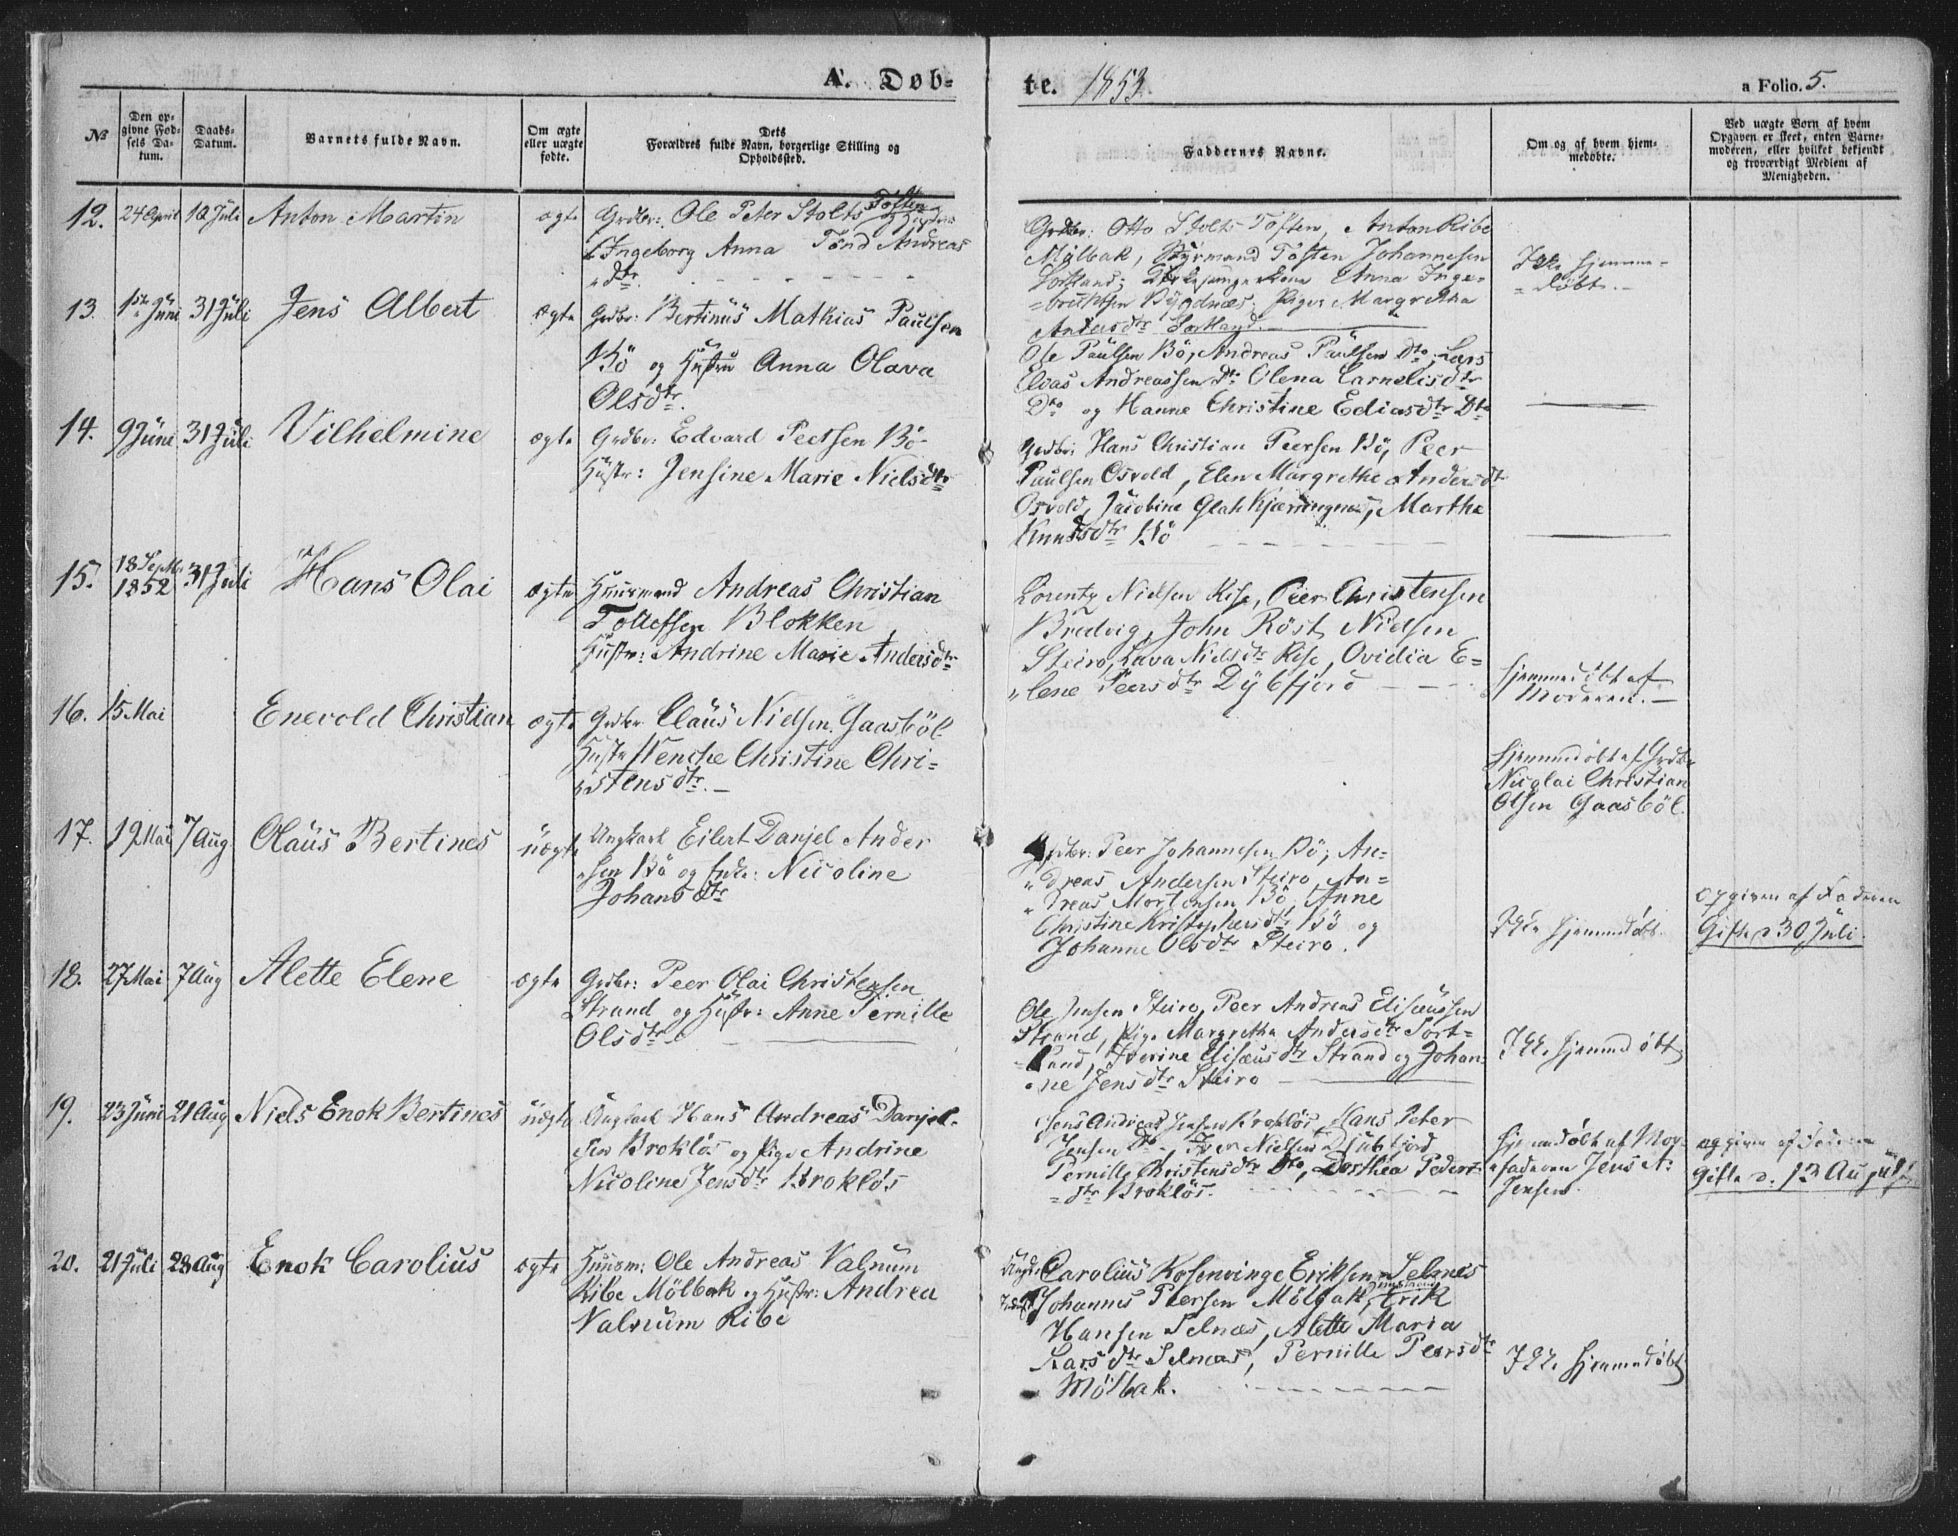 A. Døb-
te. 1853
a Folio. 5.
No
Den op-
givne Fød-
sels Da-
tum.
Daabs-
Datum.
Barnets fulde Navn.
Om ægte
eller uægte
fødte.
Dets
Forældres fulde Navn, borgerlige Stilling og
Opholdssted.
Faddernes Navne.
Om og af hvem hjem-
medøbte.
Ved uægte Børn af hvem
Opgaven er skeet, enten Barne-
moderen, eller hvilket bekjendt
og troværdigt Medlem af
Menigheden.
12. 24 April 10 Juli Anton Martin ægte Grdbr: Ole Peter Stolts Toften
Ingeborg Anna Tönd Andreas
dtr
Grdbr: Otto Stolts Toften, Anton Ribe
Mölbak, Toften Johannesen
Sortland; Anna Inge-
Bÿgdnæs; Pige Margretha
Andersdtr Sortland.
Ikke hjemme-
døbt.
13. 1ste Juni 31 Juli Jens Albert ægte Grdbr: Bertinüs Mathias Paulsen
Bö og Hustru Anna Olava
Olsdtr.
Ole Paülsen Bö, Andreas Paülsen Dto, Lars
Elias Andreassen Dto Olena Cornelisdtr
Dto og Hanne Christine Ediasdtr Dto
14. 9 Jüni 31 Juli Vilhelmine ægte Grdbr: Edvard Peersen Bö
Hustr: Jensine Marie Nielsdtr
Grdbr: Hans Christian Peersen Bö, Peer
Paulsen Osvold, Elen Margrethe Andersdtr
Osvold, Jacobine Glah Kjærringnæs, Martha
Knudsdtr Bö
15. 18 Septbr 1852 31 Juli Hans Olai ægte Huusmand Andreas Christian
Tollefsen Blokken
Hustr: Andrine Marie Andersdtr
Lorentz Nielsen Rise, Peer Christensen
Bredvig, John Röst Nielsen
Steiro, Lava Nielsdtr Rise, Ovidia E-
lene Peersdtr Dÿbfjord
hjemmedøbt af
Moderen.
16. 15 Mai Enevold Christian ægte Grdbr: Claüs Nielsen Gaasböl
Hustr Wenche Christine Chri-
stensdtr.
hjemmedøbt af Grdbr
Nicolai Christian
Olsen Gaasböl.
17. 19 Mai 7 Aug Olaüs Bertines üægte Ungkarl Eilert Danjel Ander
sen Bö og Enke: Nicoline
Johansdtr
Grdbr: Peer Johannesen Bö, An-
dreas Andersen Steiro, An-
dreas Mortensen Bö, Anne
Christine Kristophersdtr Bö og
Johanne Olsdtr Steiro.
Ikke hjemmedøbt
opgiven af Faderen
Gifte d 30 Juli.
18. 27 Mai 7 Aug Alette Elene ægte Grdbr: Peer Olai Christensen
Strand og Hustr: Anne Pernille
Olsdtr
Ole Jensen Steiro, Peer Andreas Elisæussen
Strand, Pige Margretha Andersdtr Sort-
land, Iverine Elisæusdtr Strand og Johan-
ne Jensdtr Steiro
Ikke hjemmedøbt
19. 23 Juni 21 Aug Niels Enok Bertines üægte Ungkarl Hans Andreas Danjel-
sen Brokløs og Pige Andrine
Nicoline Jensdtr Brokløs
Jens Andreas Jensen Brokløs, Hans Peter
Jensen Dto, Iver Nielsen Djubfjord
Pernille Christensdtr Dto, Dorthea Peders-
dtr Brokløs.
hjemmedøbt af Mor-
faderen Jens A.
Jensen.
opgiven af Faderen
Gifte d. 13 August
20. 21 Juli 28 Aug Enok Carolius ægte Huusm: Ole Andreas Valnum
Ribe Mölbak og Hustr: Andrea
Valnum Ribe
Carolius Rosenvinge Eriksen Selnæs
Johannes Peersen Mölbak, Erik
Hansen Selnæs, Alette Maria
Larsdtr Selnæs, Pernille Peersdtr
Mölbak.
Ikke hjemmedøbt